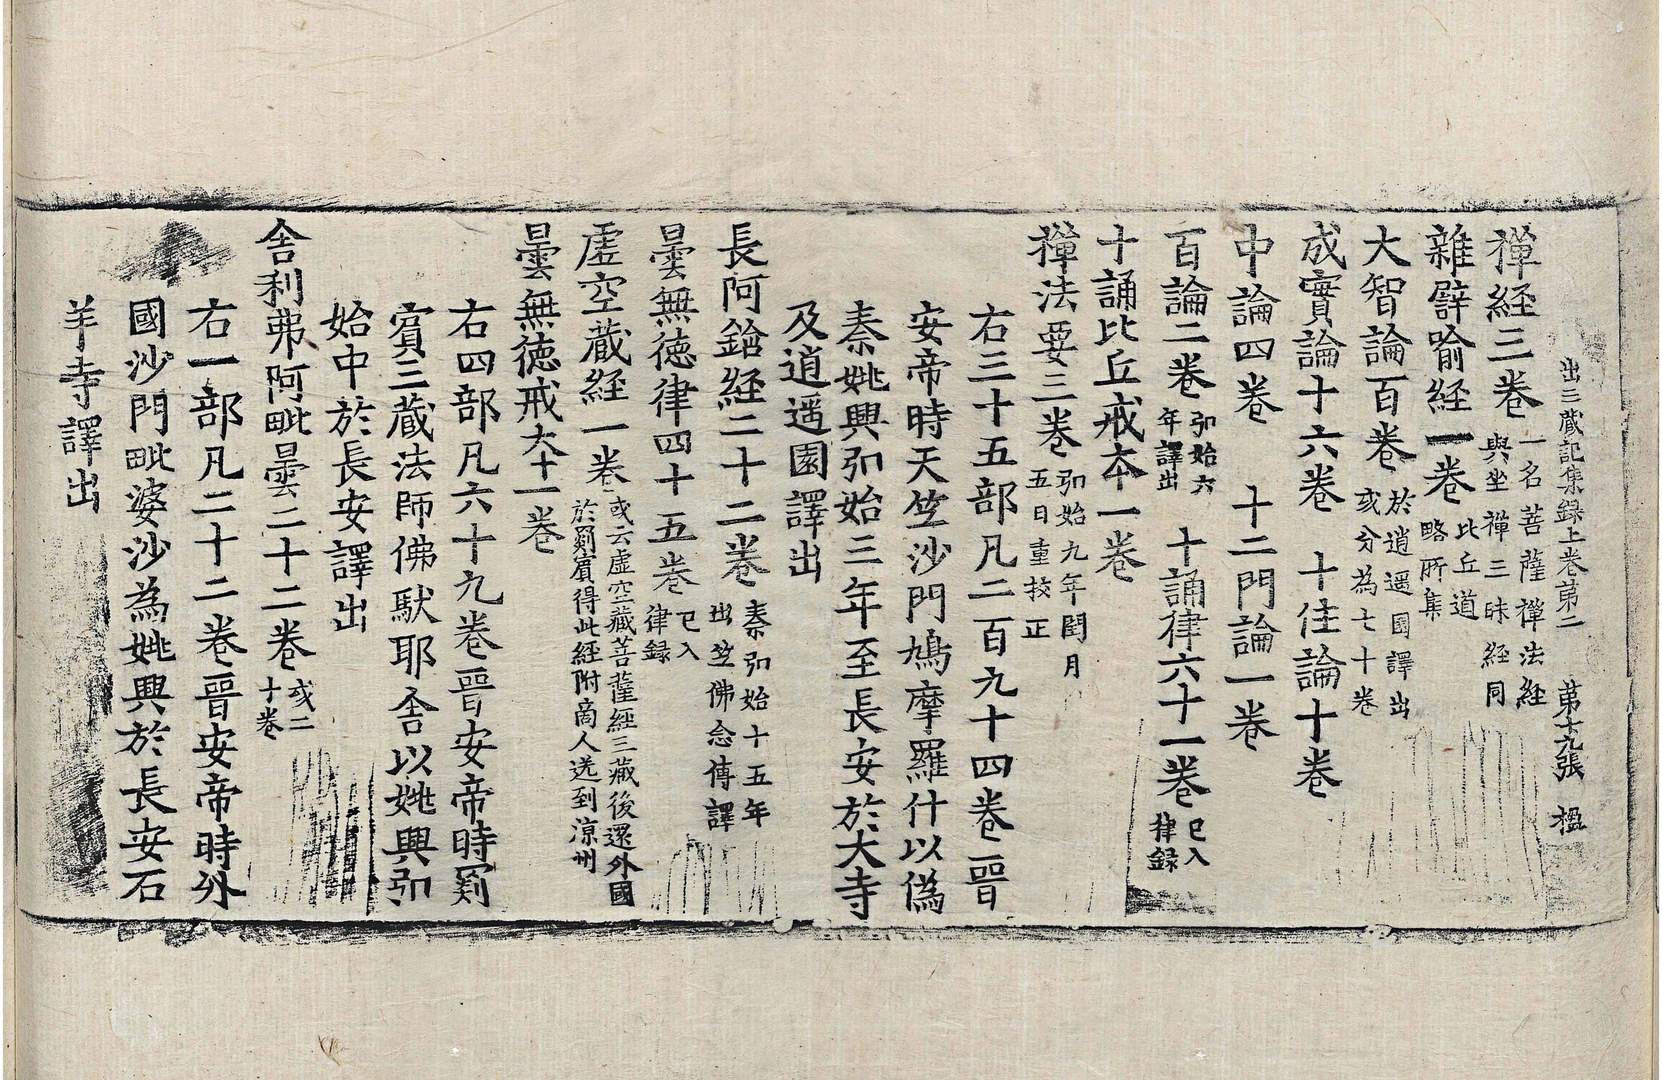 出三蔵記集録上卷第二 第十九張 楹
禪経三卷 一名菩薩禪法経與坐禪三昧経同
雜譬喻経一卷 比丘道略所集
大智論百卷 於逍遥園譯出或分為七十卷
成實論十六卷 十住論十卷
中論四卷 十二門論一卷
百論二卷 弘始六年譯出 十誦律六十一卷 已入律録
十誦比丘戒夲一卷
禪法要三卷 弘始九年閏月五日重挍正
右三十五部凡二百九十四卷晉
安帝時天竺沙門鳩摩羅什以偽
秦姚興弘始三年至長安於大寺
及逍遥園譯出
長阿鋡経二十二卷 秦弘始十五年出竺佛念傳譯
曇無德律四十五卷 已入律録
虛空藏経一卷 或云虛空藏菩薩經三藏後還外國於罽賔得此経附商人送到涼州
曇無徳戒夲一卷
右四部凡六十九卷晉安帝時罽
賔三蔵法師佛馱耶舍以姚興弘
始中於長安譯出
舍利弗阿毗曇二十二卷 或二十卷
右一部凡二十二卷晉安帝時外
國沙門毗婆沙為姚興於長安石
羊寺譯出